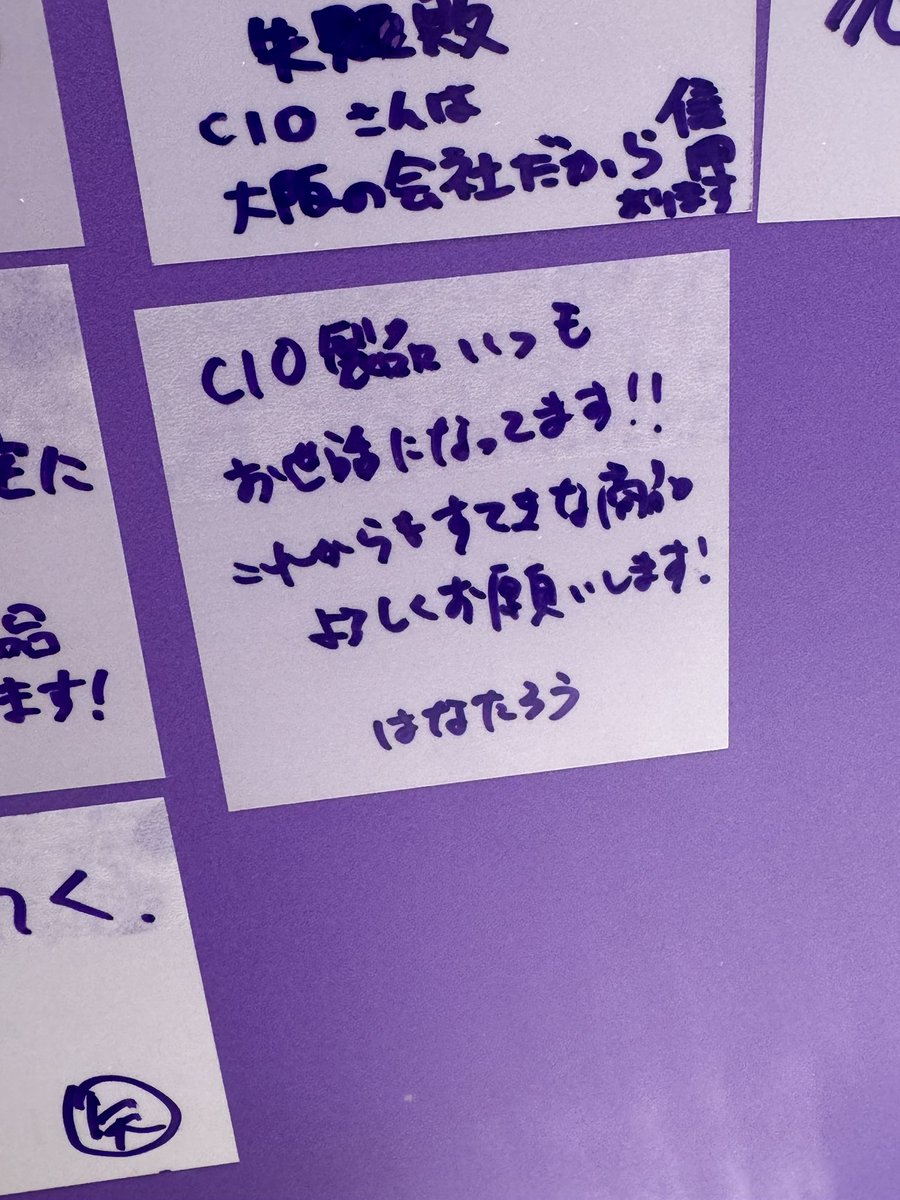 失敗
CIO さんは
大阪の会社だから 信用
あります
CIO製品 いつも
お世話になってます!!
これからもすてきな商品
よろしくお願いします!
はなたろう
定に
品
ます!
く.